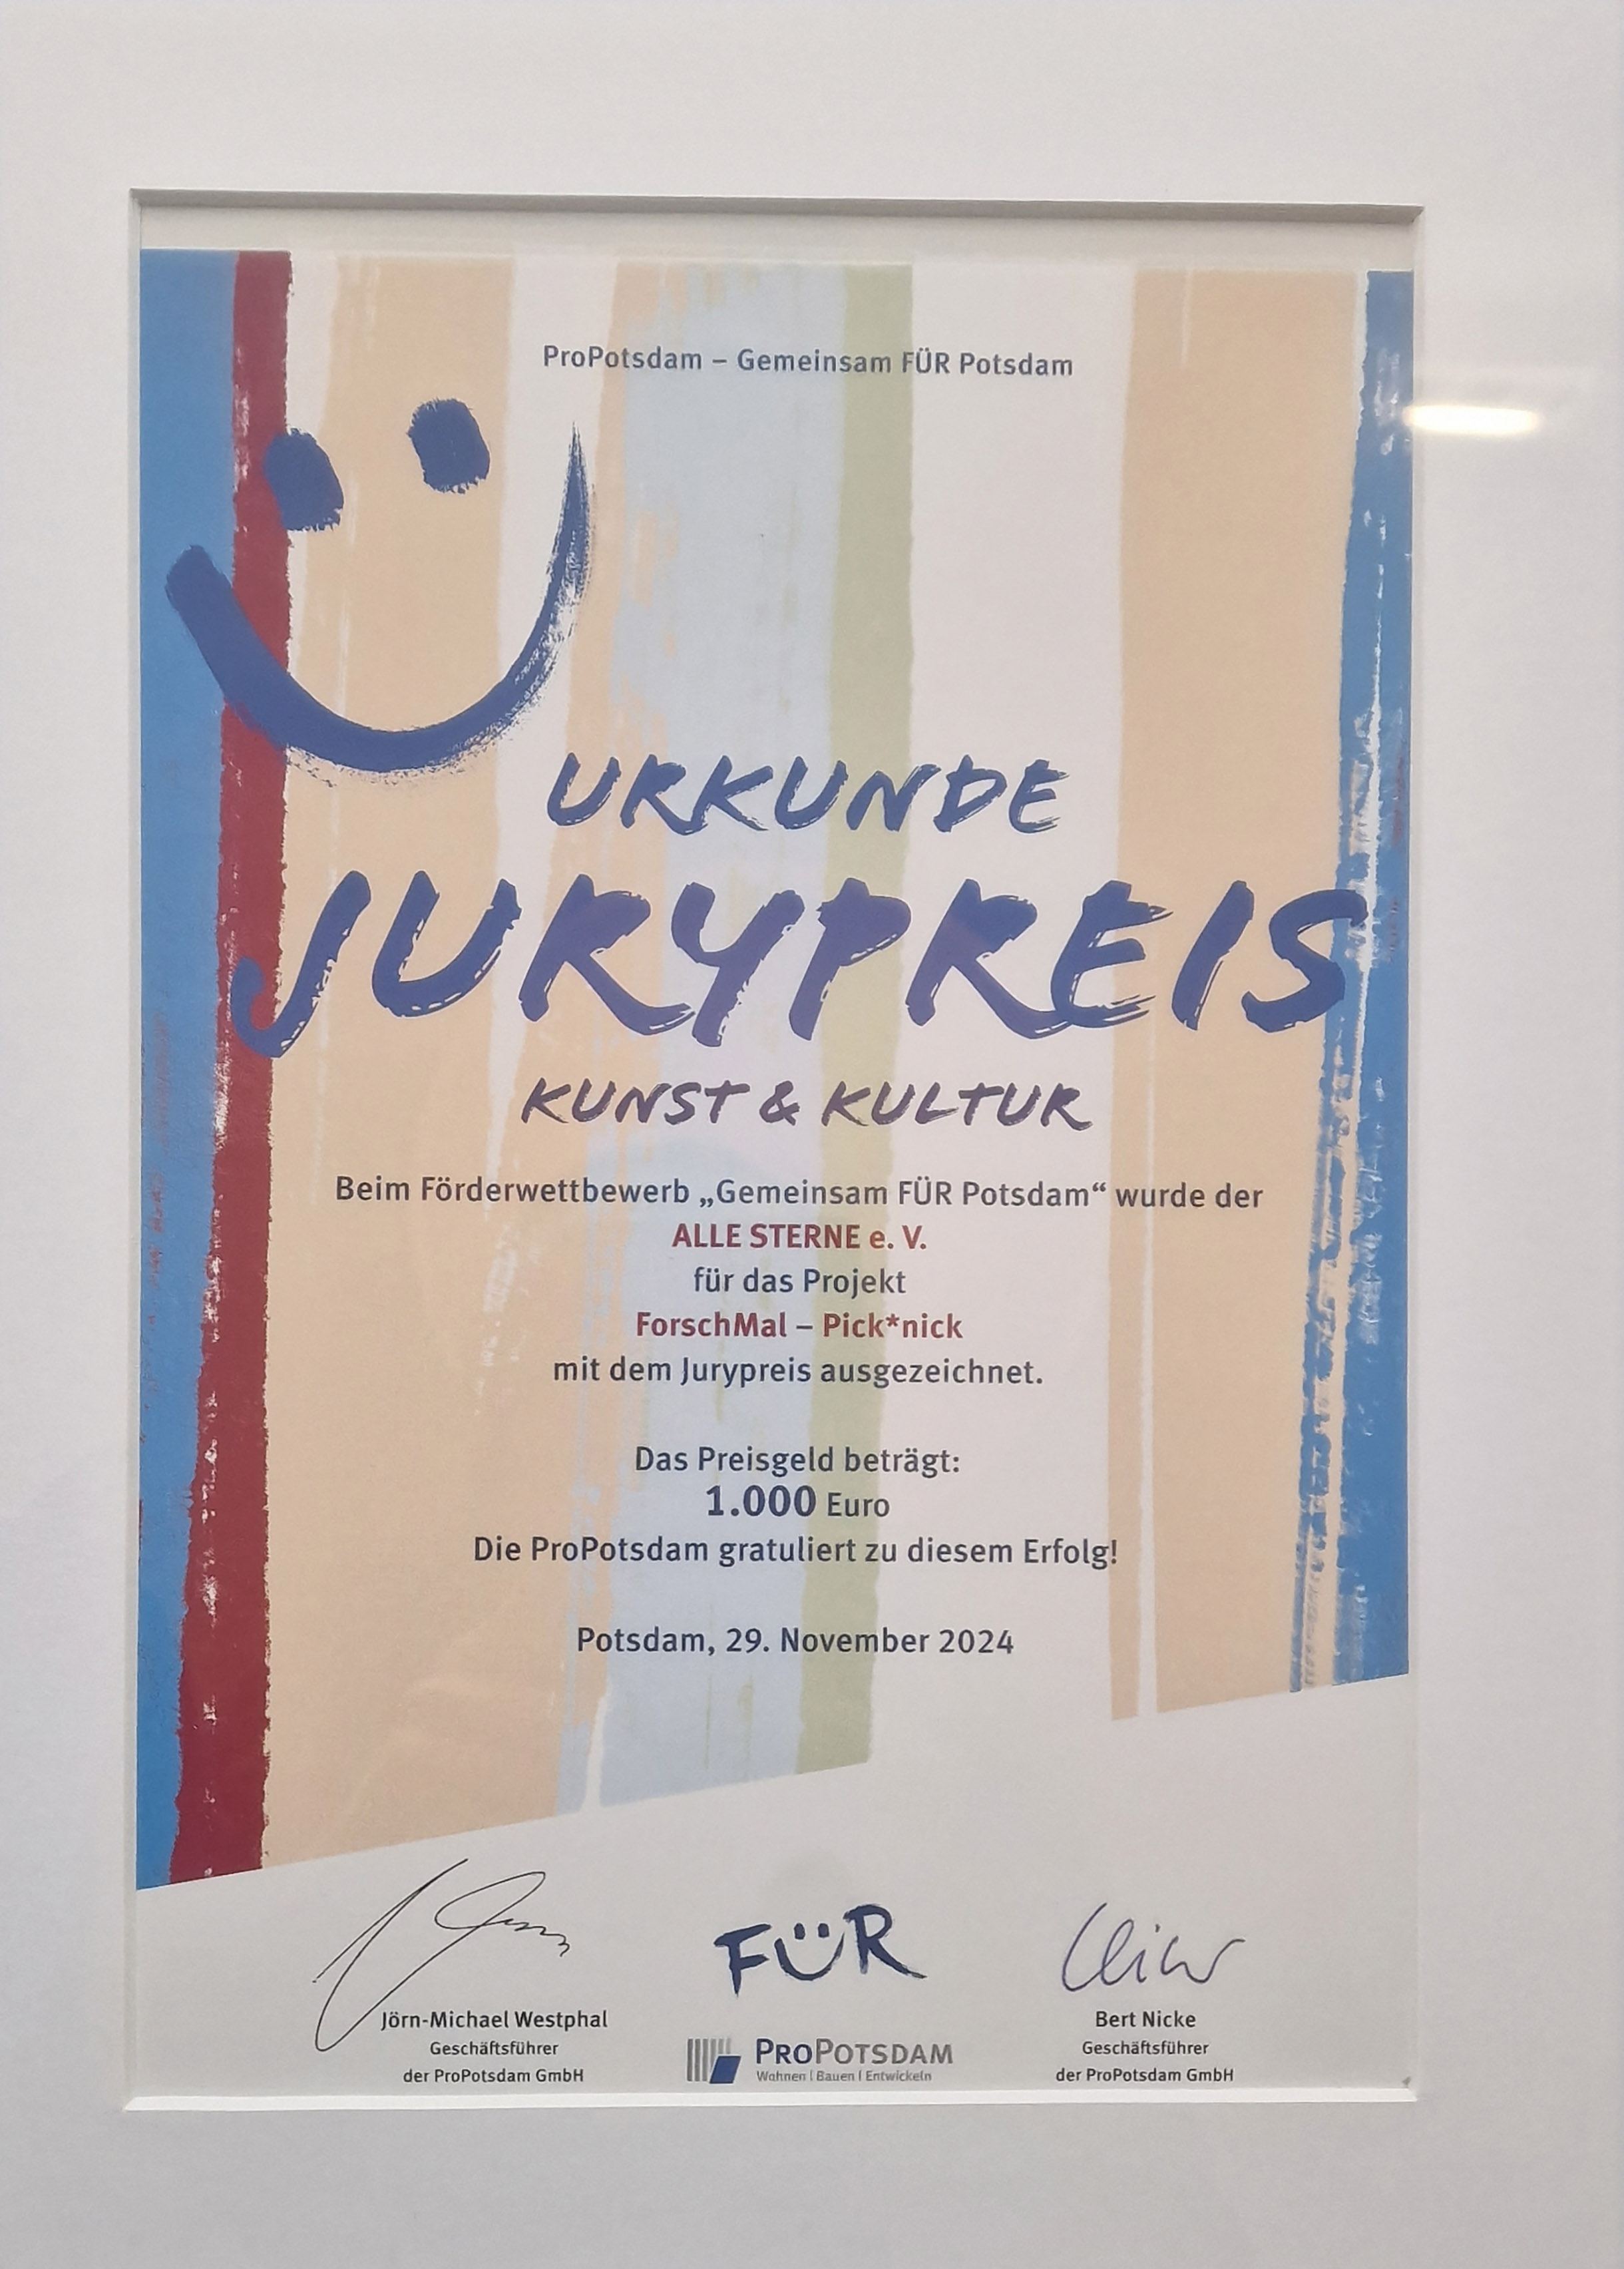 ProPotsdam – Gemeinsam FÜR Potsdam
URKUNDE
JURYPREIS
KUNST & KULTUR
Beim Förderwettbewerb „Gemeinsam FÜR Potsdam“ wurde der
ALLE STERNE e. V.
für das Projekt
ForschMal – Pick*nick
mit dem Jurypreis ausgezeichnet.
Das Preisgeld beträgt:
1.000 Euro
Die ProPotsdam gratuliert zu diesem Erfolg!
Potsdam, 29. November 2024
FÜR
Jörn-Michael Westphal
Geschäftsführer
der ProPotsdam GmbH
PROPOTSDAM
Wohnen | Bauen | Entwickeln
Bert Nicke
Geschäftsführer
der ProPotsdam GmbH